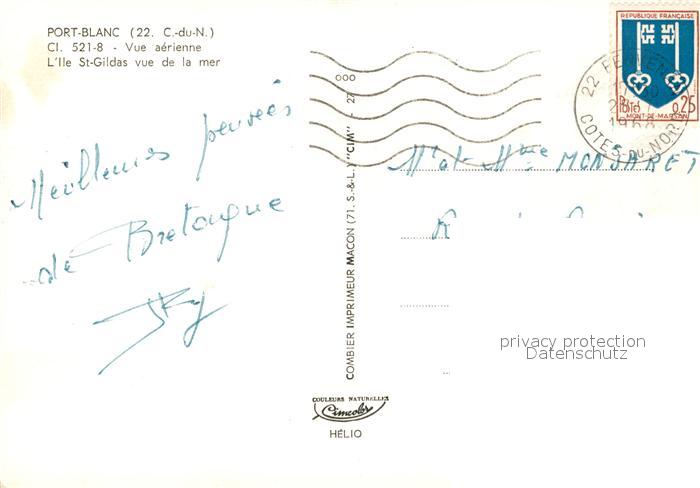 PORT-BLANC (22. C.-du-N.)
Cl. 521-8 - Vue aérienne
L'Ile St-Gildas vue de la mer
Meilleures pensées
de Bretagne
COMBIER IMPRIMEUR MACON (71. S.-&-L.) "CIM"
COULEURS NATURELLES
Cimcolor
HÉLIO
REPUBLIQUE FRANÇAISE
0,25
MONT-DE-MARSAN
22
COTES-DU-NORD
Mr et Mme MONJARET
privacy protection
Datenschutz